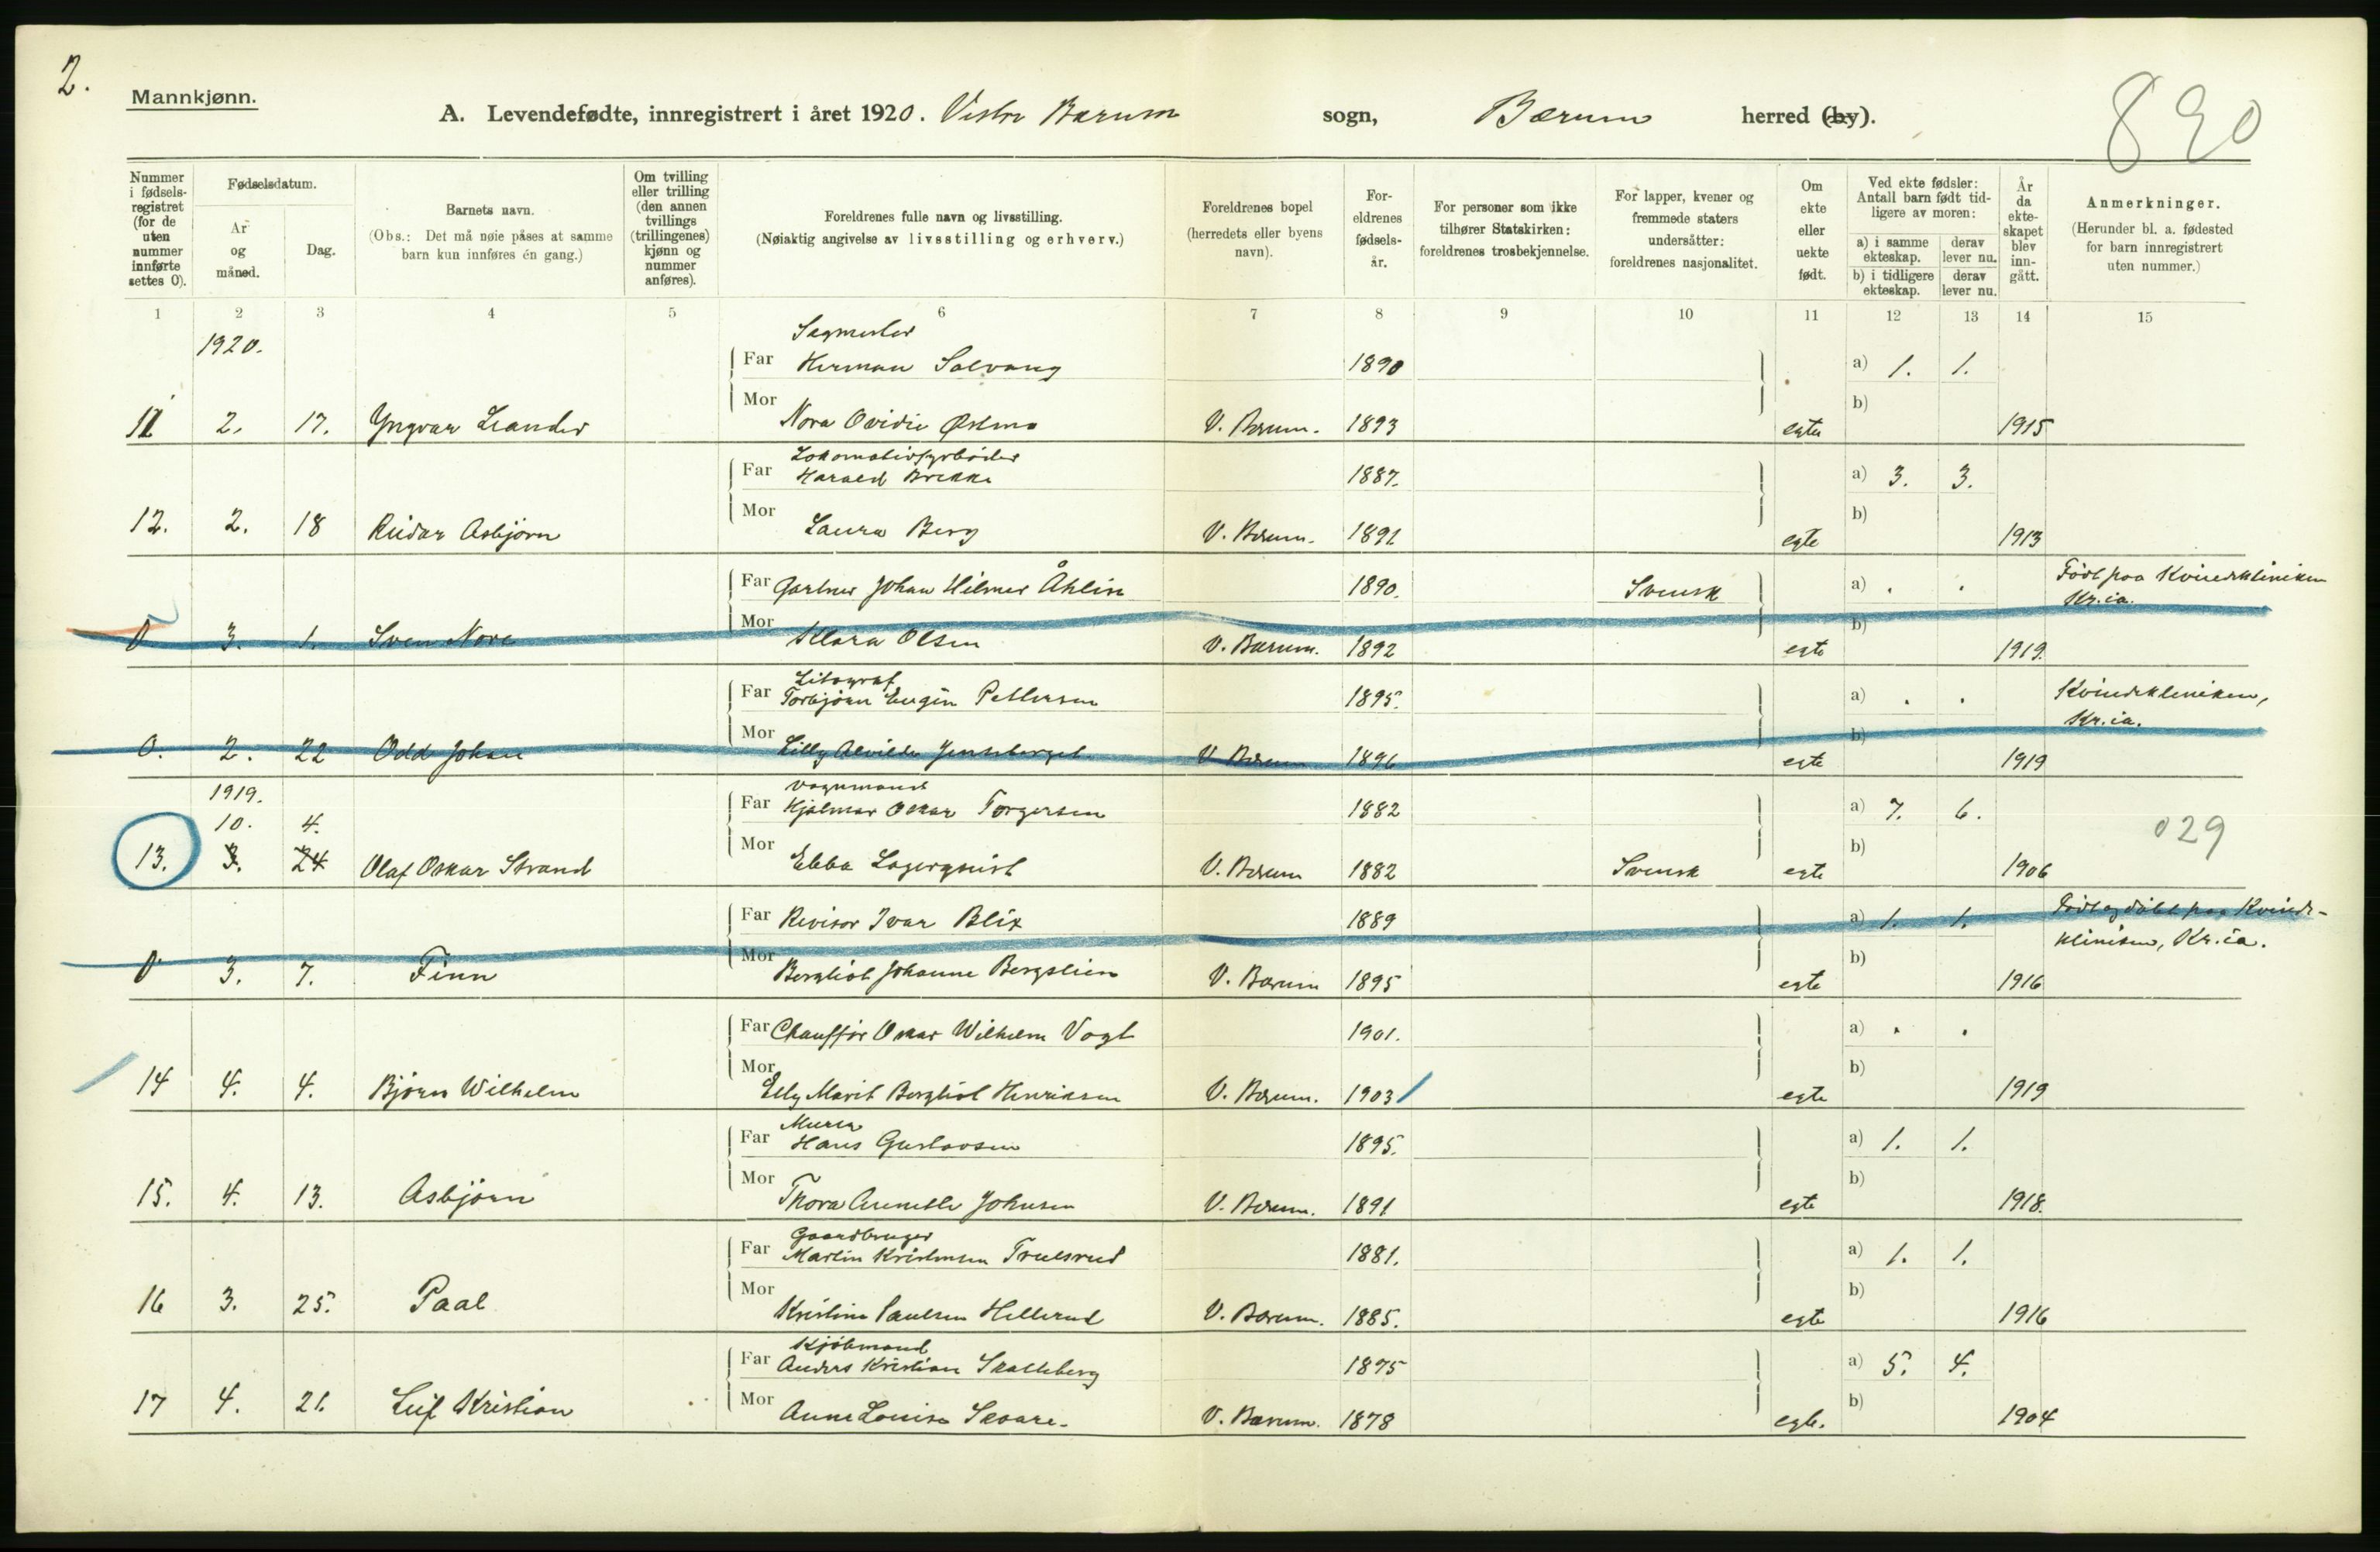 2.
Mannkjønn.
A. Levendefødte, innregistrert i året 1920. Vestre Bærum sogn, Bærum herred (by).
890
Nummer i fødsels-registret (for de uten nummer innførte settes 0).
Fødselsdatum.
År og måned.
Dag.
Barnets navn.
(Obs.: Det må nøie påses at samme barn kun innføres én gang.)
Om tvilling eller trilling (den annen tvillings (trillingenes) kjønn og nummer anføres).
Foreldrenes fulle navn og livsstilling.
(Nøiaktig angivelse av livsstilling og erhverv.)
Foreldrenes bopel (herredets eller byens navn).
For-eldrenes fødsels-år.
For personer som ikke tilhører Statskirken: foreldrenes trosbekjennelse.
For lapper, kvener og fremmede staters undersåtter: foreldrenes nasjonalitet.
Om ekte eller uekte født.
Ved ekte fødsler: Antall barn født tid-ligere av moren:
a) i samme ekteskap.
derav lever nu.
b) i tidligere ekteskap.
derav lever nu.
År da ekte-skapet blev inn-gått.
Anmerkninger.
(Herunder bl. a. fødested for barn innregistrert uten nummer.)
1 2 3 4 5 6 7 8 9 10 11 12 13 14 15
1920.
Sagmester
Far Herman Solvang 1890 a) 1. 1.
Mor b)
11 2. 17. Yngvar Leander Nora Ovidie V. Bærum. 1893 egte 1915
Lokomotivfyrbøder
Far Harald Brekke 1887. a) 3. 3.
Mor b)
12. 2. 18 Reidar Asbjørn Laura Berg V. Bærum. 1891 egte 1913
Far Gartner Johan Hilmer Åhlin 1890. Svensk a) . . Født paa Kvindekliniken
Kr.ia.
Mor b)
0 3. 1. Sven Nore Klara Olsen V. Bærum. 1892 egte 1919.
Litograf
Far Torbjørn Eugin Pettersen 1895. a) . . Kvindekliniken,
Kr.ia.
Mor b)
0. 2. 22 Odd Johan Lilly Alvilde V. Bærum 1896 egte 1919
1919. Vognmand
10. 4. Far Hjalmar Oskar Torgersen 1882 a) 7. 6. 029
Mor b)
13. 3. 24 Olaf Oskar Strand Ebba Lagerquist V. Bærum 1882 Svensk egte 1906
Far Revisor Ivar Blix 1889 a) 1. 1. Født og døbt paa Kvinde-
kliniken, Kr.ia.
Mor b)
0 3. 7. Finn Bergliot Johanne Bergslien V. Bærum 1895 egte 1916
Far Chauffør Oskar Wilhelm Vogt 1901. a) . .
Mor b)
14 4. 4. Bjørn Wilhelm Elly Marit Bergliot Henriksen V. Bærum. 1903 egte 1919
Murer
Far Hans Gustavsen 1895. a) 1. 1.
Mor b)
15. 4. 13. Asbjørn Thora Annette Johnsen V. Bærum. 1891 egte 1918.
Gaardbruger
Far Martin Kristensen Trulsrud 1881. a) 1. 1.
Mor b)
16 3. 25. Paal Kristine Paulsen Hellerud V. Bærum. 1885. egte 1916
Kjøbmand
Far Anders Kristian Skatteberg 1875 a) 5. 4.
Mor b)
17 4. 21. Leif Kristian Anne Louise Skaare. V. Bærum. 1878 egte. 1904